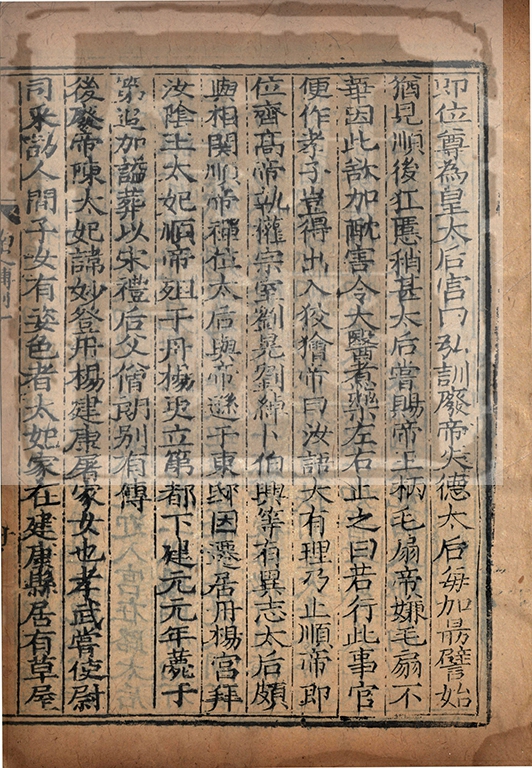 即位尊為皇太后官曰弘訓廢帝失德太后每加勗譬始
猶見順後狂慝稍甚太后嘗賜帝王柄毛扇帝嫌毛扇不
華因此欲加酖害令大醫煮藥左右止之曰若行此事官
便作孝子豈得出入狡獪帝曰汝語大有理乃止順帝即
位齊高帝執權宗室劉晃劉綽卜伯興等有異志太后頗
與相関順帝禪位太后與帝遜于東邸因遷居丹楊宮拜
汝陰王太妃順帝殂于丹楊更立第都下建元元年薨于
第追加謚葬以宋禮后父僧朗別有傳
後廢帝陳太妃諱妙登丹楊建康屠家女也孝武嘗使尉
司采訪人間子女有姿色者太妃家在建康縣居有草屋